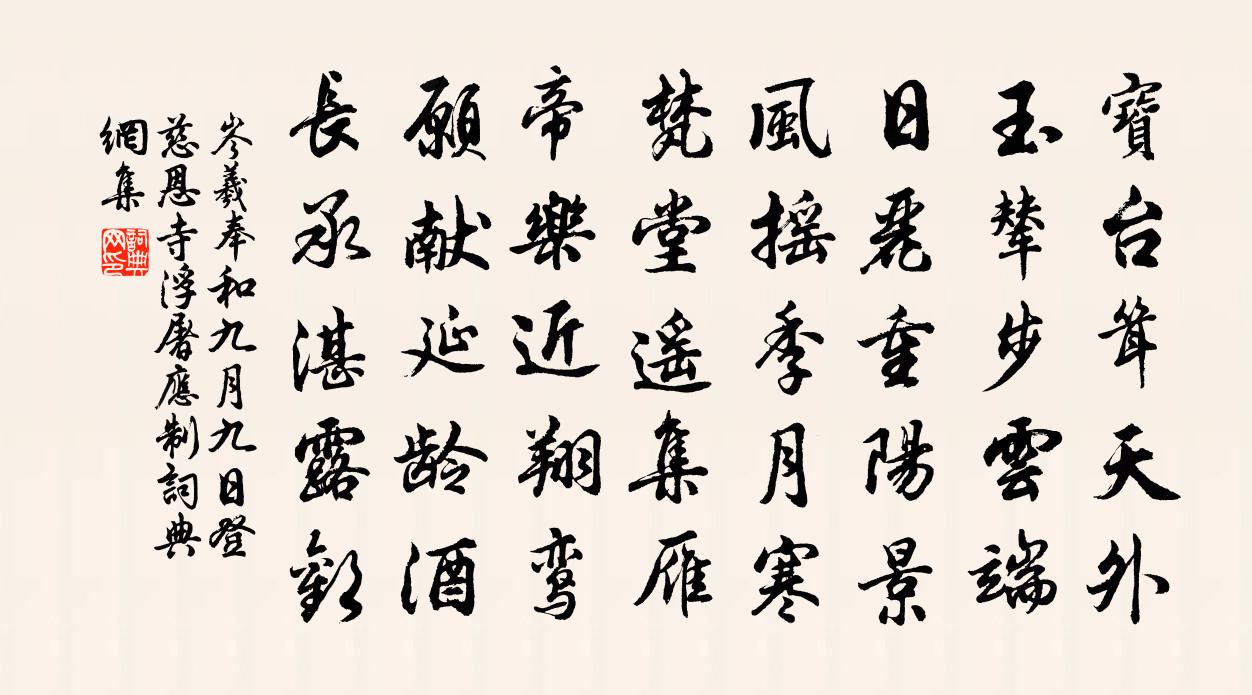 寶台耸天外
玉辇步雲端
日麗重陽景
風摇季月寒
梵堂遥集雁
帝樂近翔鸾
願献延龄酒
長承湛露歡
岑羲奉和九月九日登
慈恩寺浮屠應制詞典
網集
詞典網印